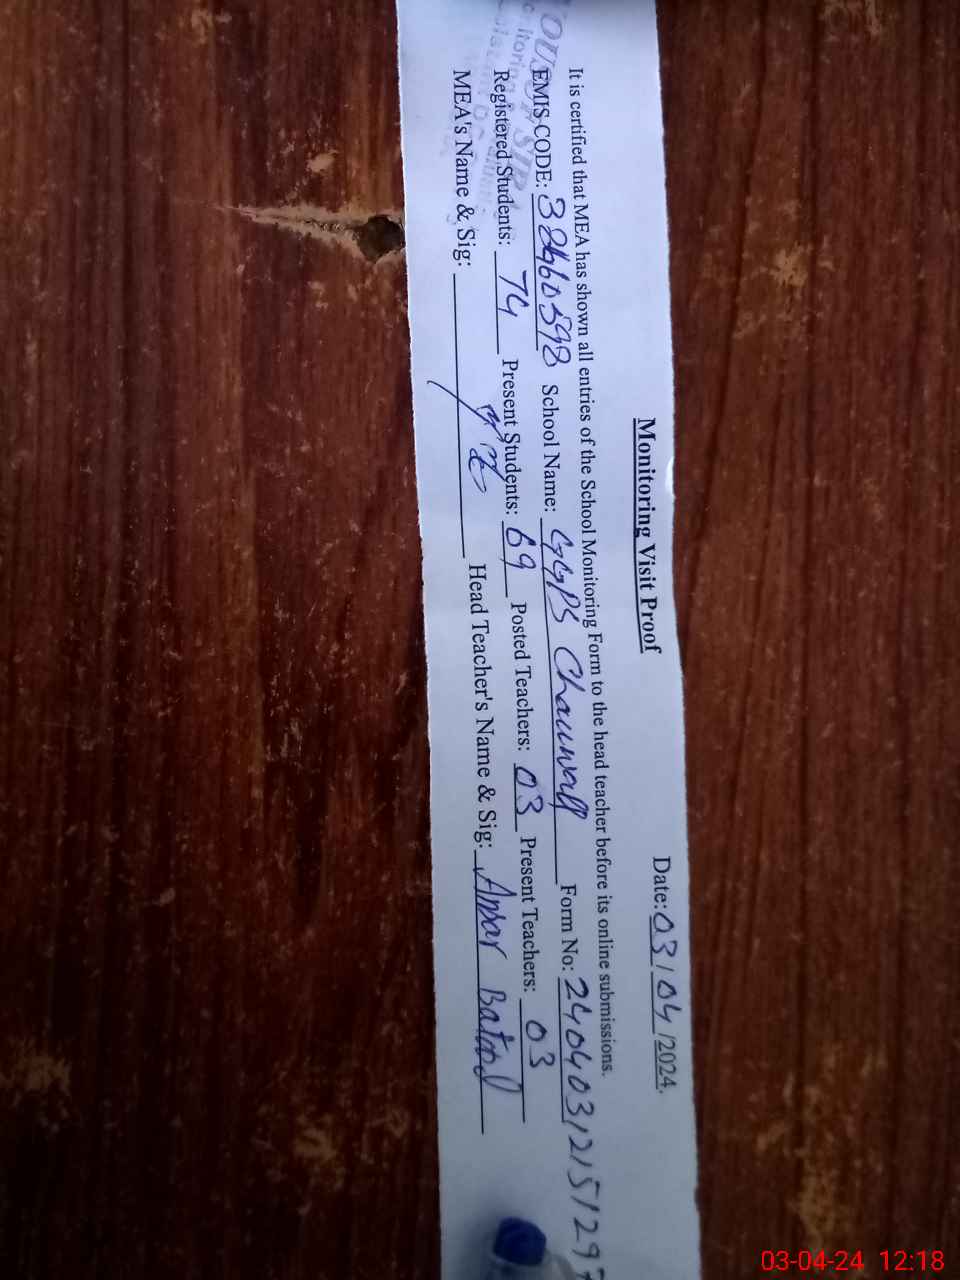 Monitoring Visit Proof Date: 03/04/2024.
It is certified that MEA has shown all entries of the School Monitoring Form to the head teacher before its online submissions.
EMIS CODE: School Name: GGPS Form No:
Registered Students: 74 Present Students: 69 Posted Teachers: 03 Present Teachers: 03
MEA's Name & Sig: Head Teacher's Name & Sig: Batool
03-04-24 12:18